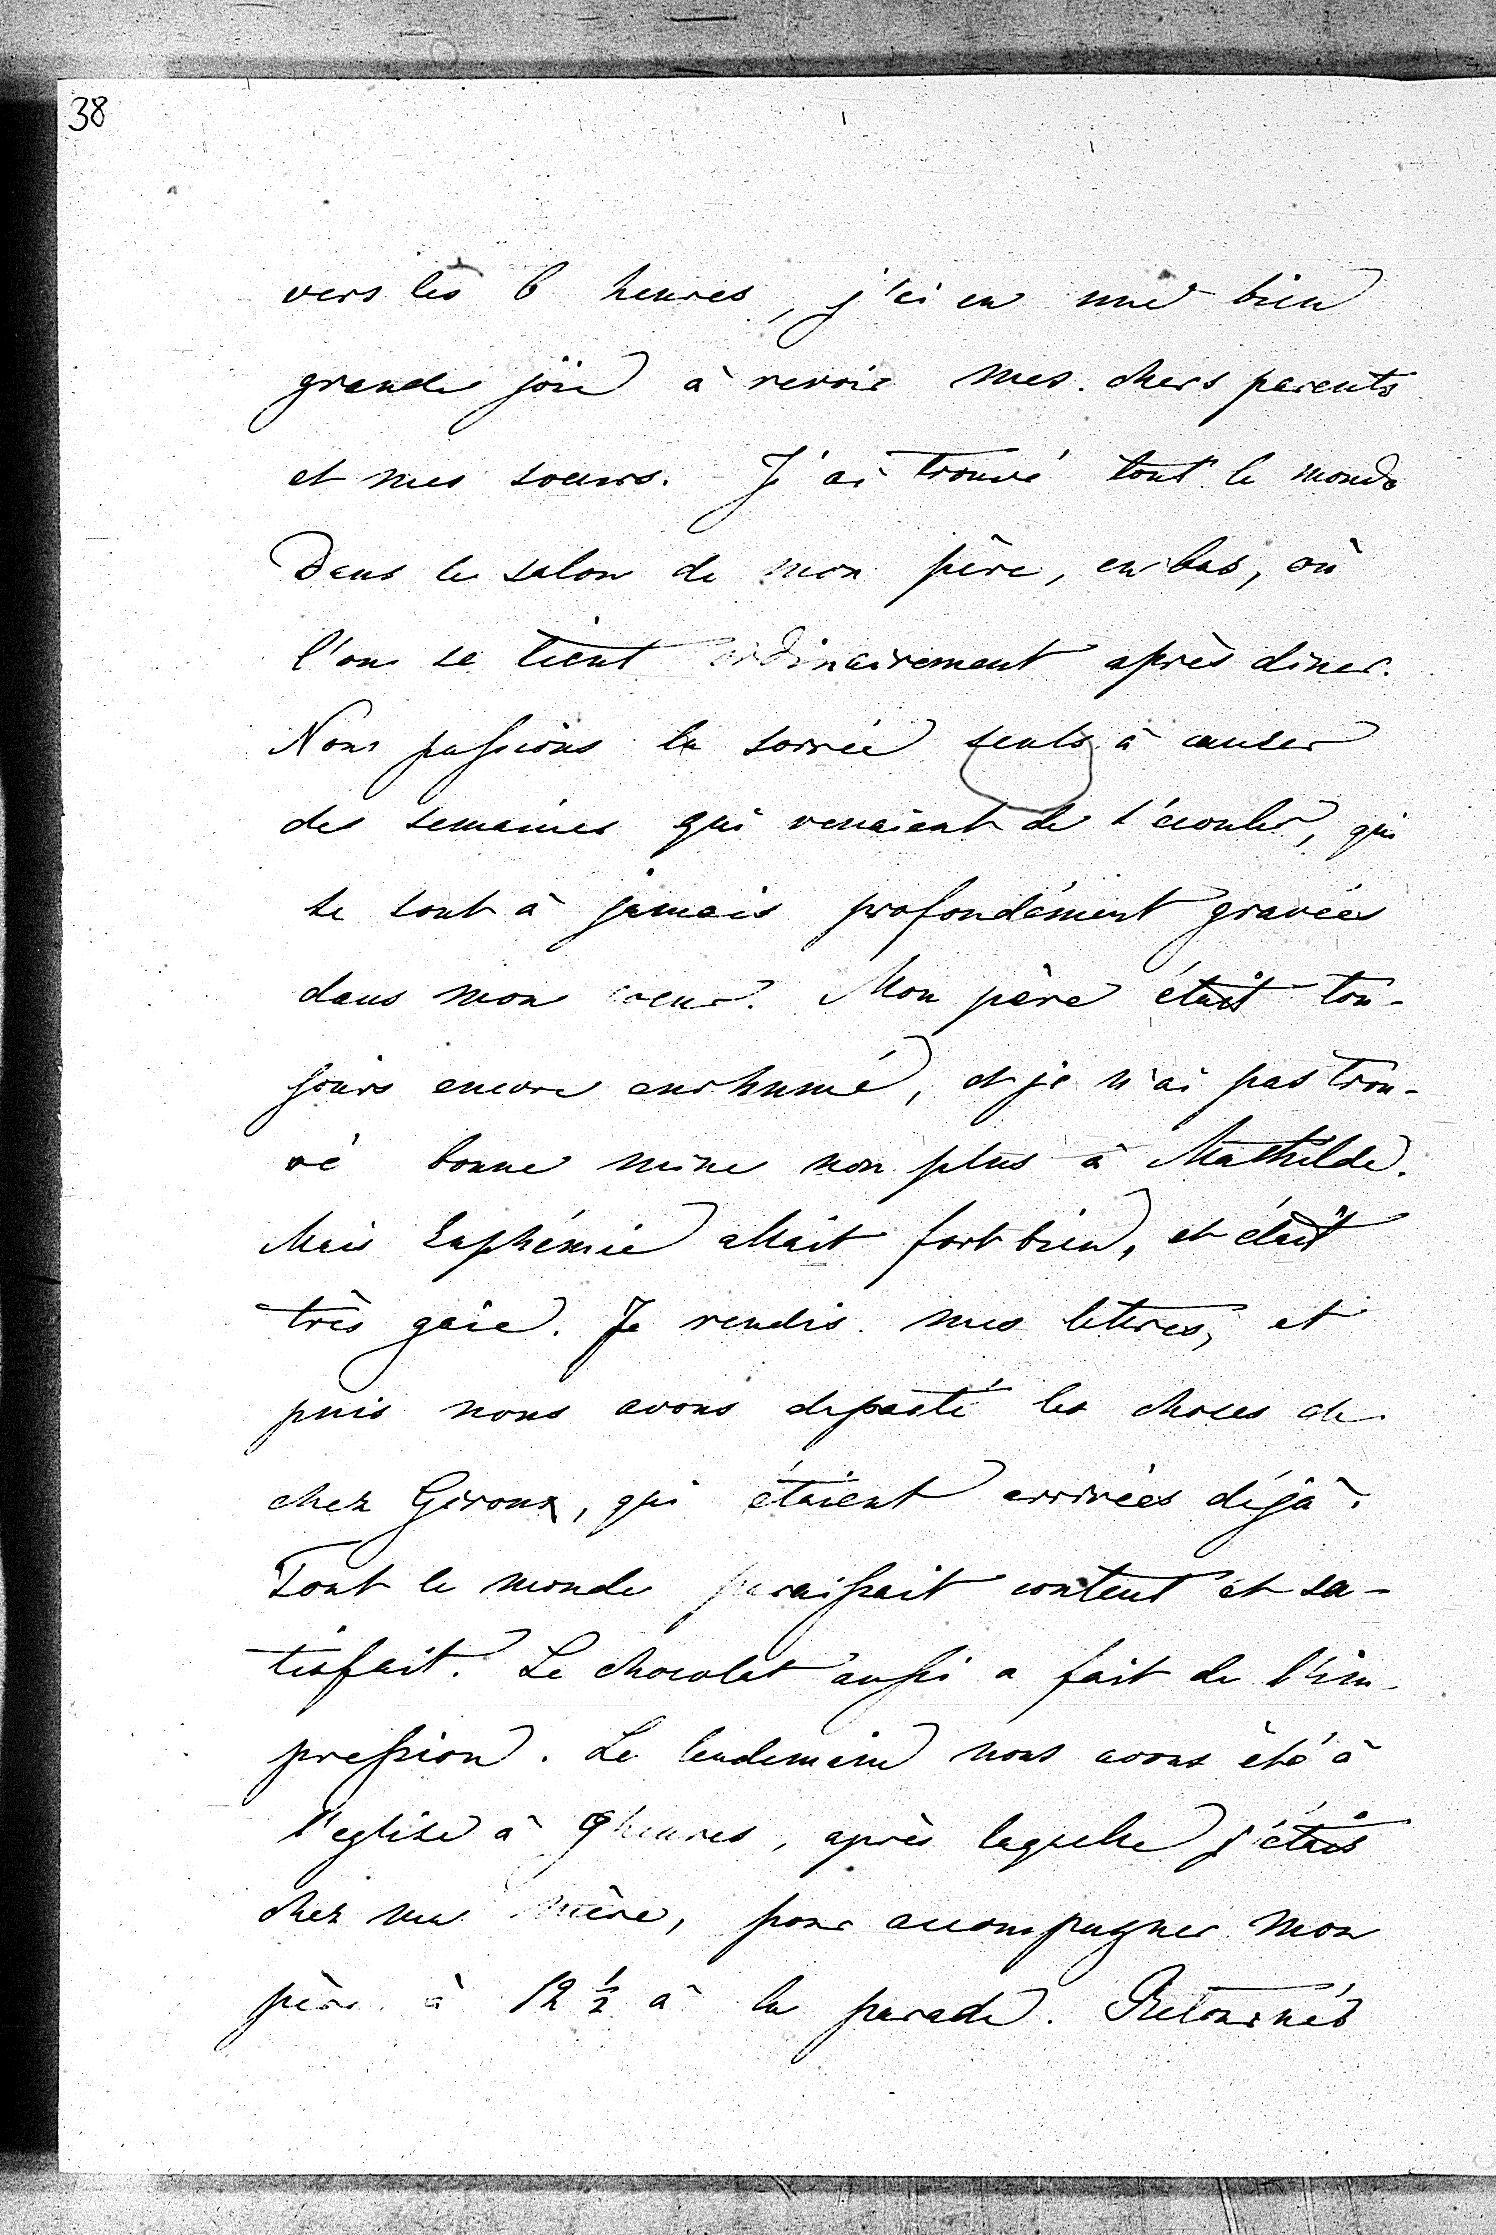 38
vers les 6 heures, j'ai eu une bien
grande joie à revoir mes chers parents
et mes soeurs. J'ai trouvé tout le monde
Dans le salon de mon père, en bas, où
l'on se tient ordinairement après diner.
Nous passions la soirée seuls à causer
des semaines qui venaient de s'écouler, qui
se sont à jamais profondément gravées
dans mon coeur. Mon père était tou-
jours encore enrhumé, et je n'ai pas trou-
vé bonne mine non plus à Mathilde.
Mais Euphémie allait fort bien, et était
très gaie. Je rendis mes lettres, et
puis nous avons depasté les choses de
chez Giroux, qui étaient arrivées déjà.
Tout le monde paraissait content et sa-
tisfait. Le chocolat aussi a fait de l'im-
pression. Le lendemain nous avons été à
l'eglise à 9 heures, après laquelle j'étais
chez ma mère, pour accompagner mon
père à 12 ½ à la parade. Retournés